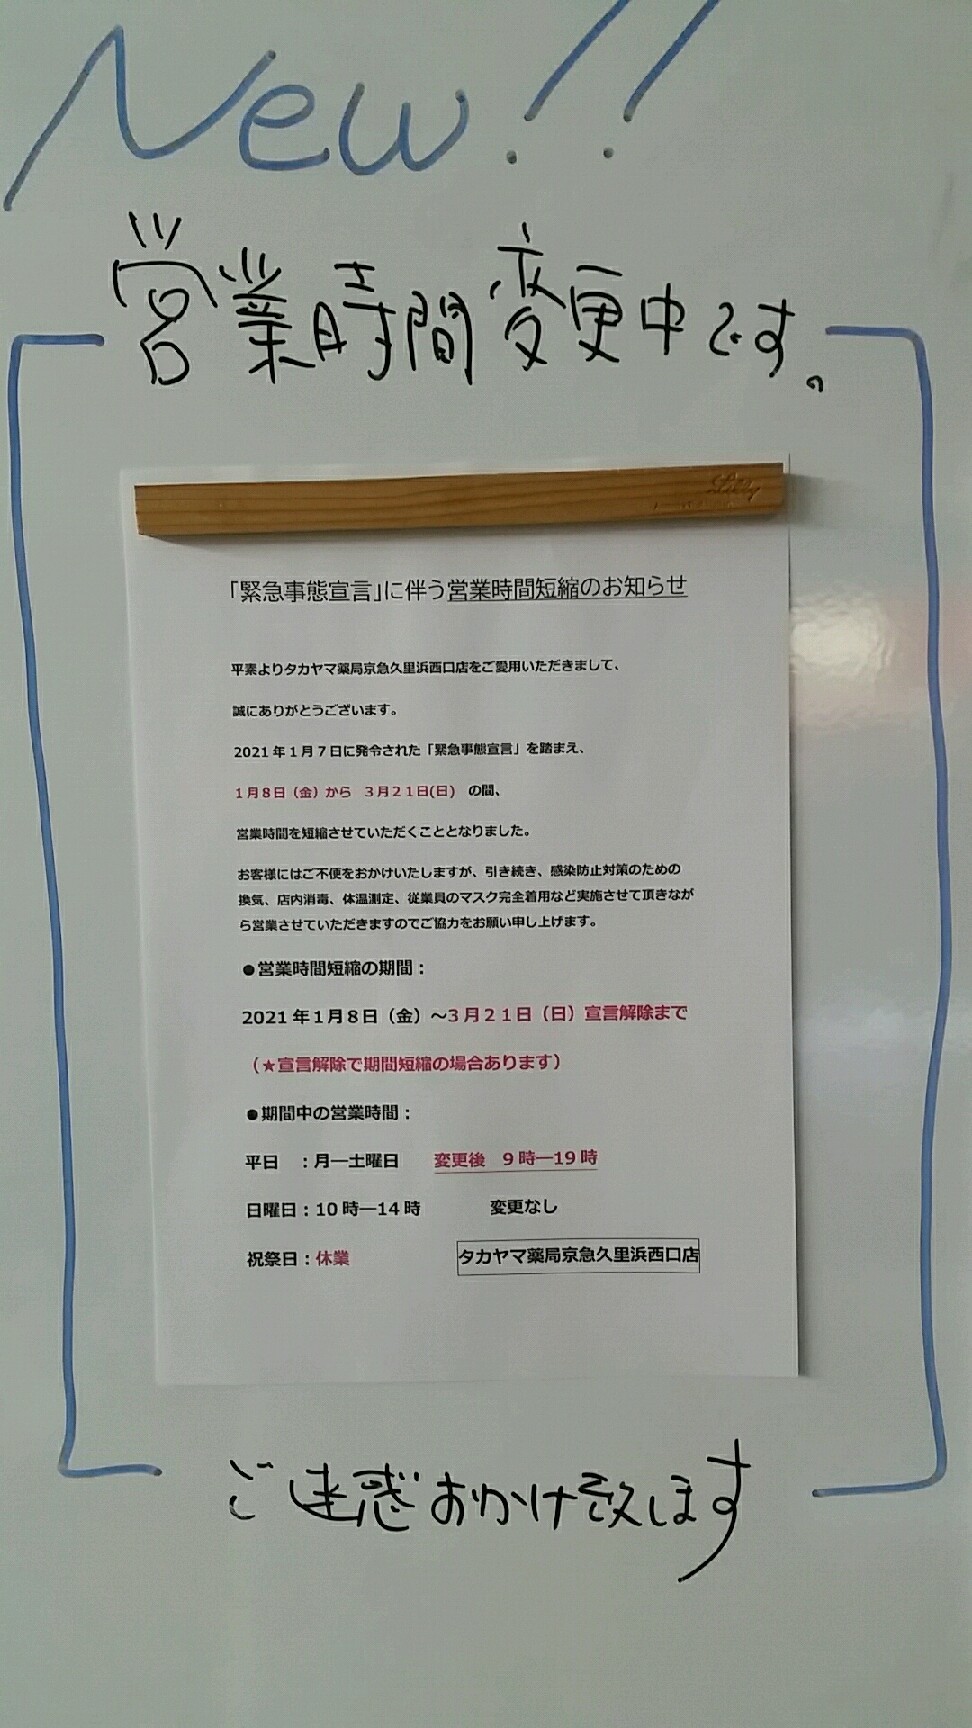 New!!
営業時間変更中です。
「緊急事態宣言」に伴う営業時間短縮のお知らせ
平素よりタカヤマ薬局京急久里浜西口店をご愛用いただきまして、
誠にありがとうございます。
2021年1月7日に発令された「緊急事態宣言」を踏まえ、
1月8日（金）から　3月21日(日)　の間、
営業時間を短縮させていただくこととなりました。
お客様にはご不便をおかけいたしますが、引き続き、感染防止対策のための
換気、店内消毒、体温測定、従業員のマスク完全着用など実施させて頂きなが
ら営業させていただきますのでご協力をお願い申し上げます。
●営業時間短縮の期間：
2021年1月8日（金）～3月21日（日）宣言解除まで
（★宣言解除で期間短縮の場合あります）
●期間中の営業時間：
平日　：月―土曜日　　変更後　9時―19時
日曜日：10時―14時　　変更なし
祝祭日：休業　　タカヤマ薬局京急久里浜西口店
ご迷惑おかけ致します